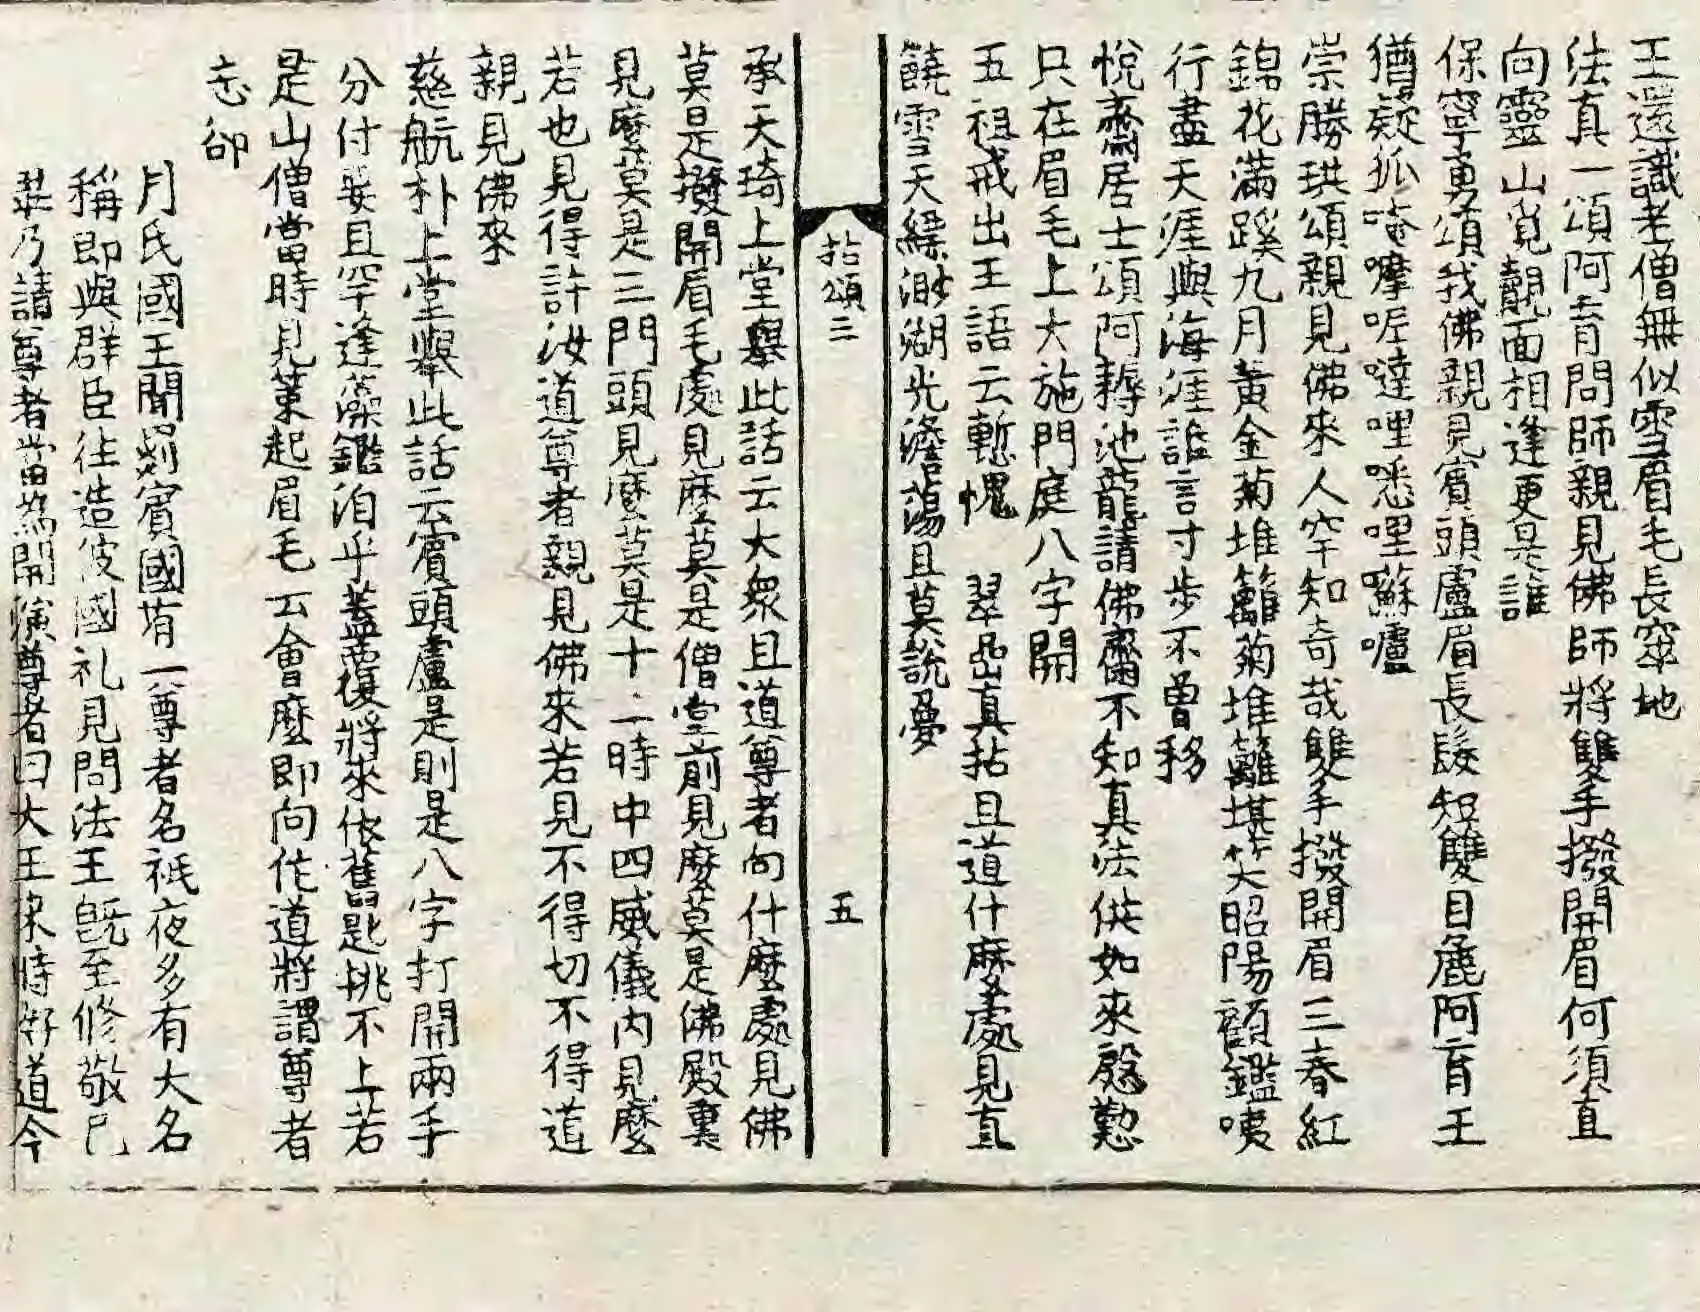 王還識老僧無似雪眉毛長窣地
法真一頌阿育問師親見佛師將雙手撥開眉何須直
向靈山覓覿面相逢更是誰
保寧勇頌我佛親見賓頭盧眉長髮短雙目麁阿育王
猶疑狐唵嚤呢噠哩悉哩囌嚧
崇勝珙頌親見佛來人罕知奇哉雙手撥開眉三春紅
錦花滿蹊九月黃金菊堆籬菊堆籬堪笑昭陽顧鑑咦
行盡天涯與海涯誰言寸步不曾移
悅齋居士頌阿耨池龍請佛齋不知真法供如來慇懃
只在眉毛上大施門庭八字開
五祖戒出王語云慙愧 翠嵒真拈且道什麼處見直
饒雪天縹渺湖光澹蕩且莫說夢
拈頌三 五
承天琦上堂舉此話云大衆且道尊者向什麼處見佛
莫是撥開眉毛處見麼莫是僧堂前見麼莫是佛殿裏
見麼莫是三門頭見麼莫是十二時中四威儀內見麼
若也見得許汝道尊者親見佛來若見不得切不得道
親見佛來
慈航朴上堂舉此話云賓頭盧是則是八字打開兩手
分付要且罕逢藻鑑洎乎蓋覆將來依舊匙挑不上若
是山僧當時見策起眉毛云會麼即向佗道將謂尊者
忘卻
月氏國王聞罽賓國有一尊者名祇夜多有大名
稱即與群臣往造彼國礼見問法王旣至修敬已
畢乃請尊者當爲開演尊者曰大王來時好道今